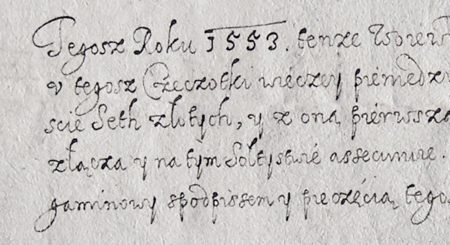 Tegosz Roku 1553. tenze Woiew
v tegosz Czeczotki wiéczey piéniedzy
scie Seth złotych, y z oną piérwszą
złącza y na tym Soltystwié assecuruie.
gaminowy spodpissem y pieczęcią tego